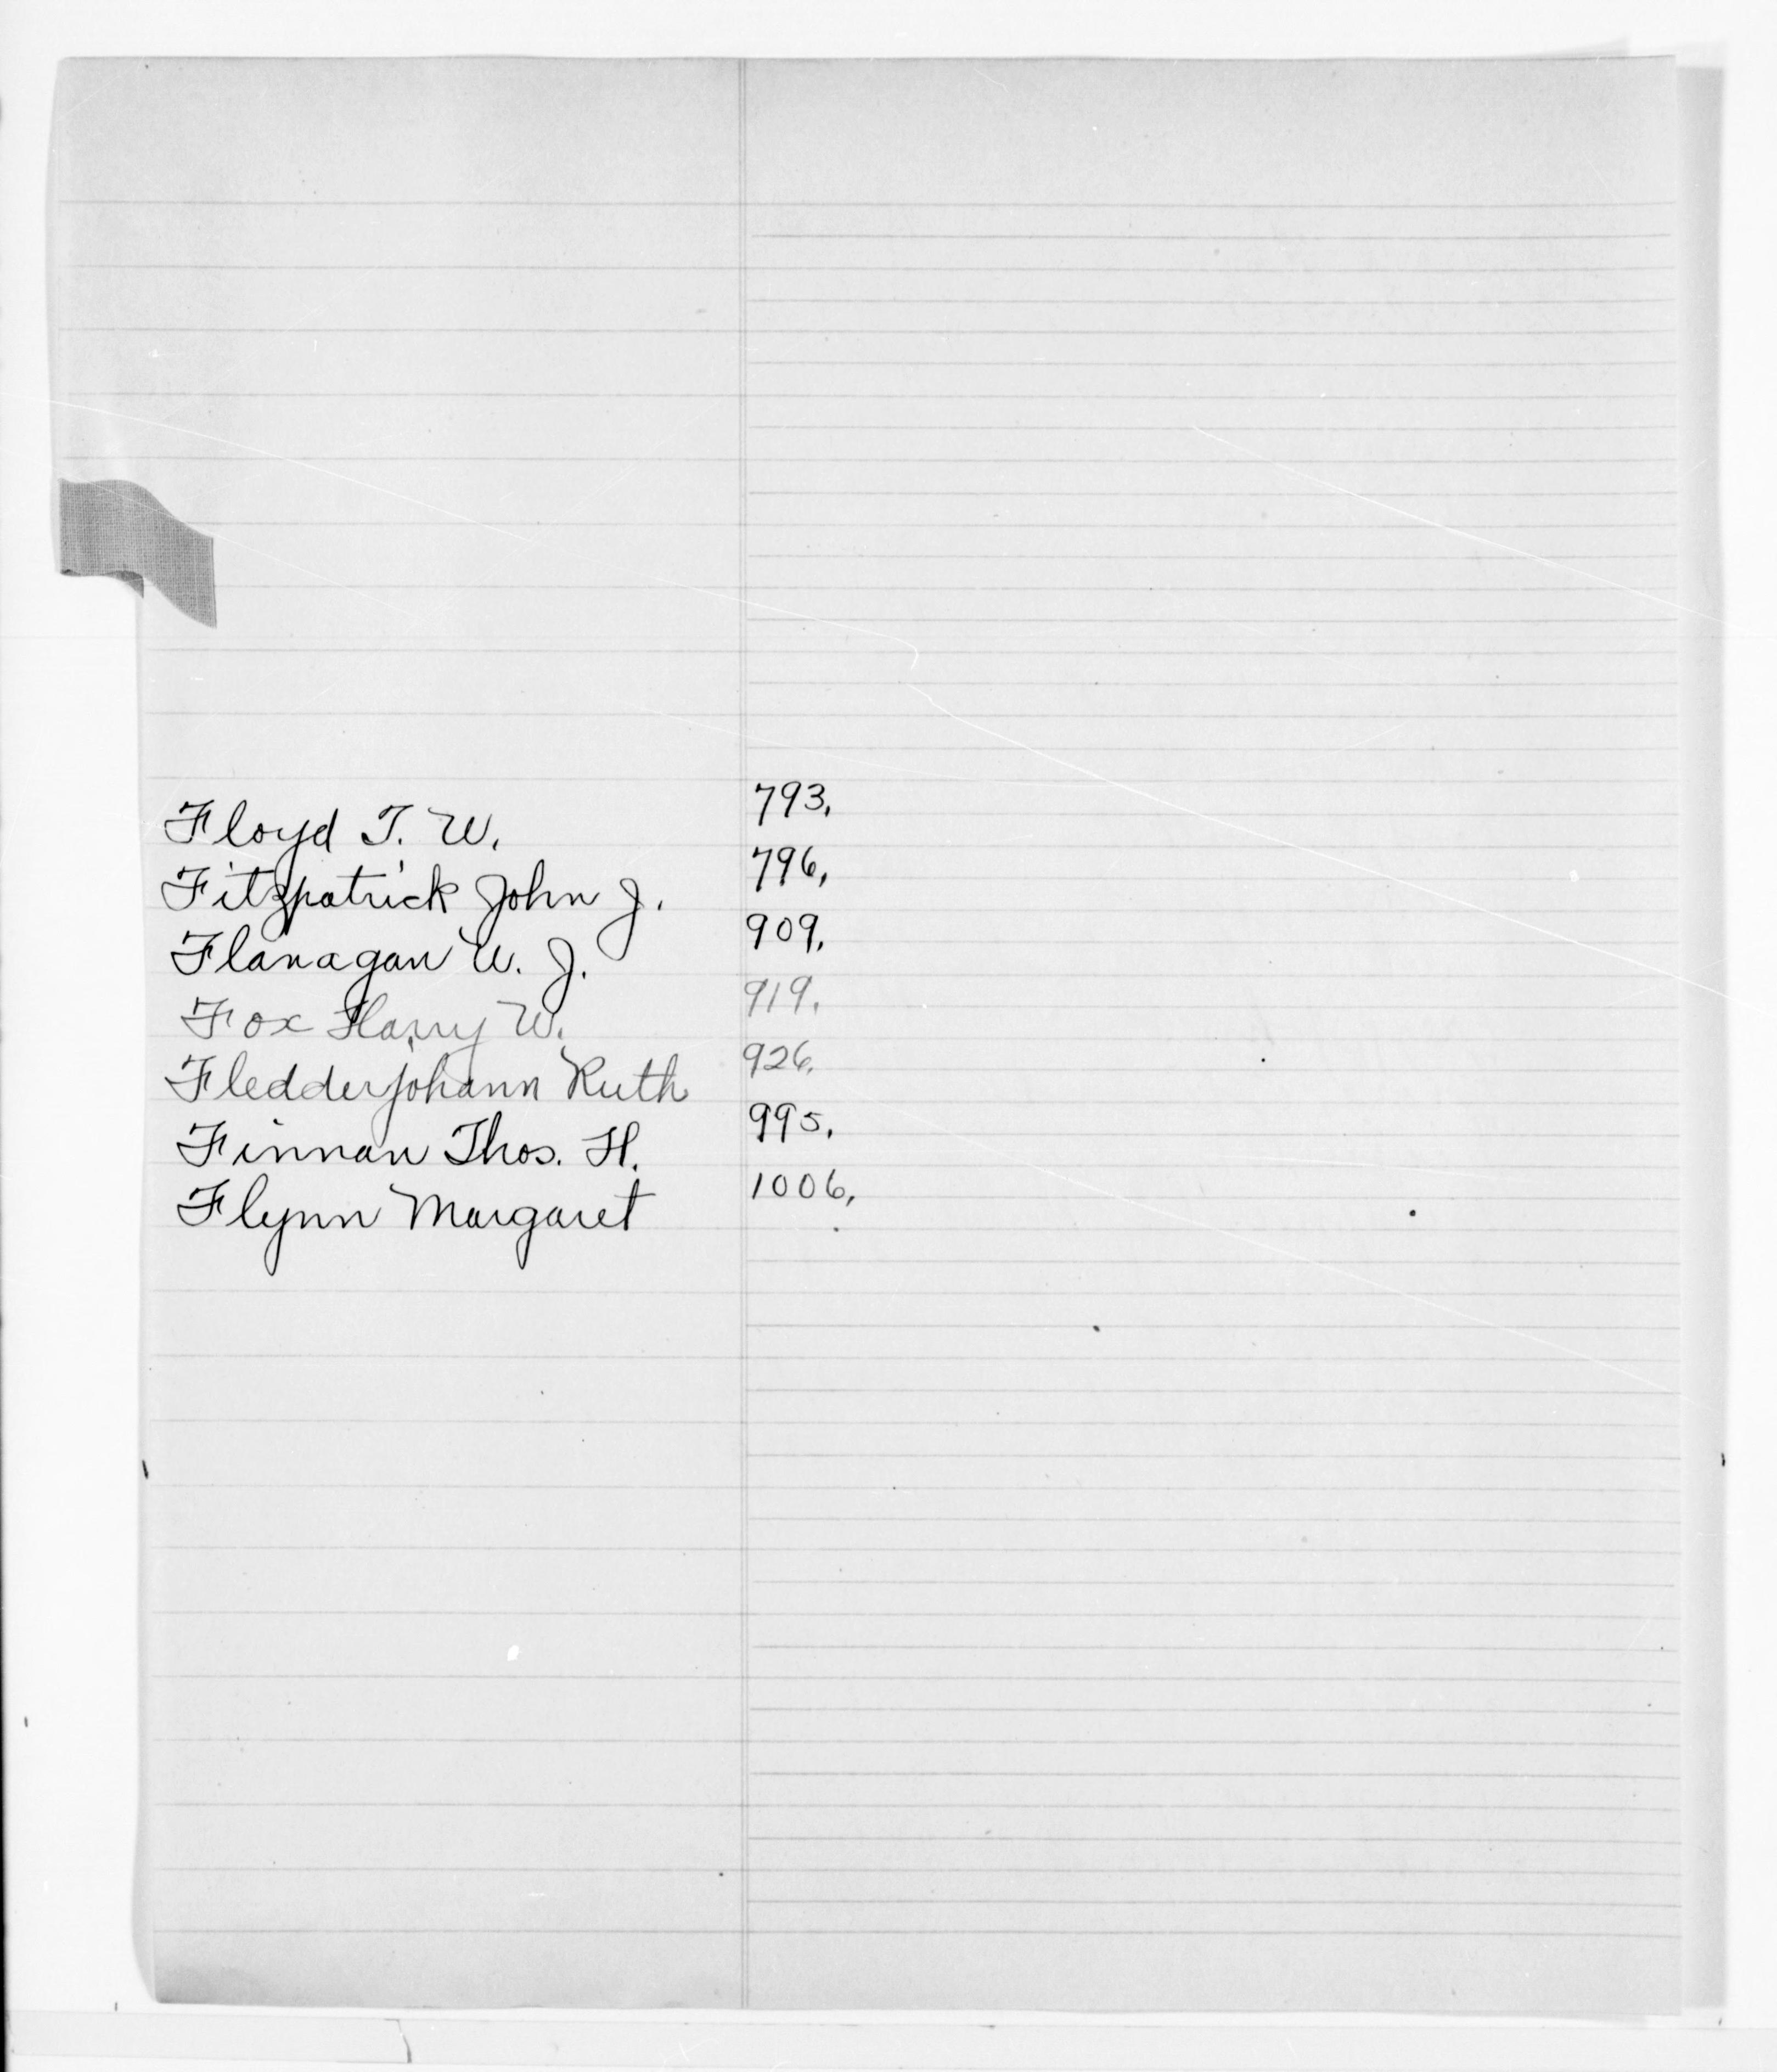 Floyd T. W. 793.
Fitzpatrick John J. 796,
Flanagan W. J. 909.
Fox Harry W. 919.
Fledderjohann Ruth 926.
Finnan Thos. H. 995.
Flynn Margaret 1006,